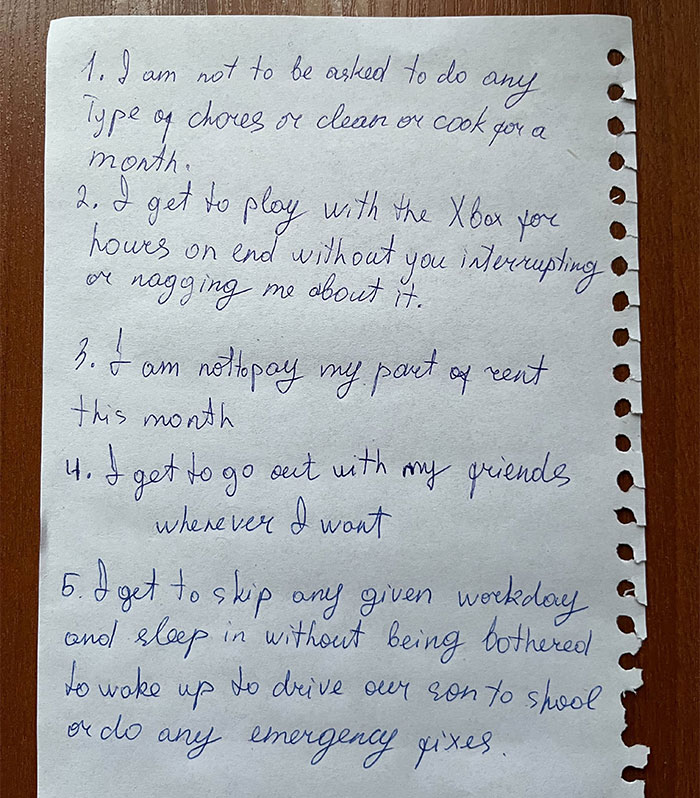 1. I am not to be asked to do any
Type of chores or clean or cook for a
month.
2. I get to play with the Xbox for
hours on end without you interrupting
or nagging me about it.
3. I am not to pay my part of rent
this month
4. I get to go out with my friends
whenever I want
5. I get to skip any given workday
and sleep in without being bothered
to wake up to drive our son to shool
or do any emergency fixes.